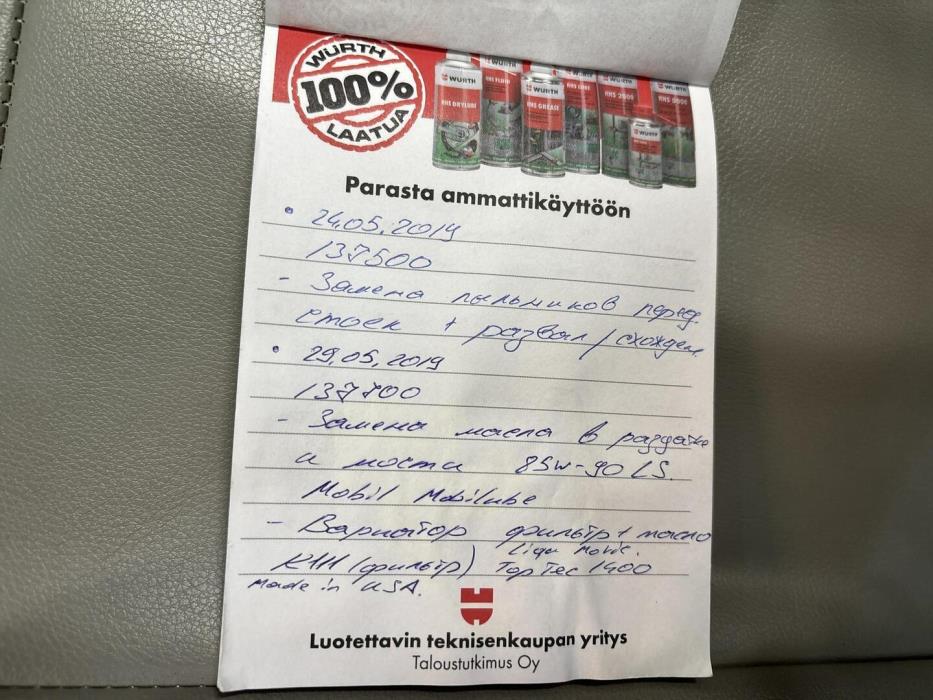 WÜRTH
100%
LAATUA
WÜRTH
HHS DRYLUBE
WURTH
HHS FLUID
WURTH
HHS GREASE
WURTH
HHS LUBE
WURTH
HHS 2000
WURTH
HHS 5000
WURTH
Parasta ammattikäyttöön
• 24.05.2019
137500
- Замена пыльников перед.
стоек + развал/схожден.
• 29.05.2019
137700
- Замена масла в раздатке
и моста 85W-90 LS.
Mobil Mobilube
- Вариатор фильтр + масло
Liqu Molic.
К111 (фильтр) TopTec 1400
Made in USA.
Luotettavin teknisenkaupan yritys
Taloustutkimus Oy